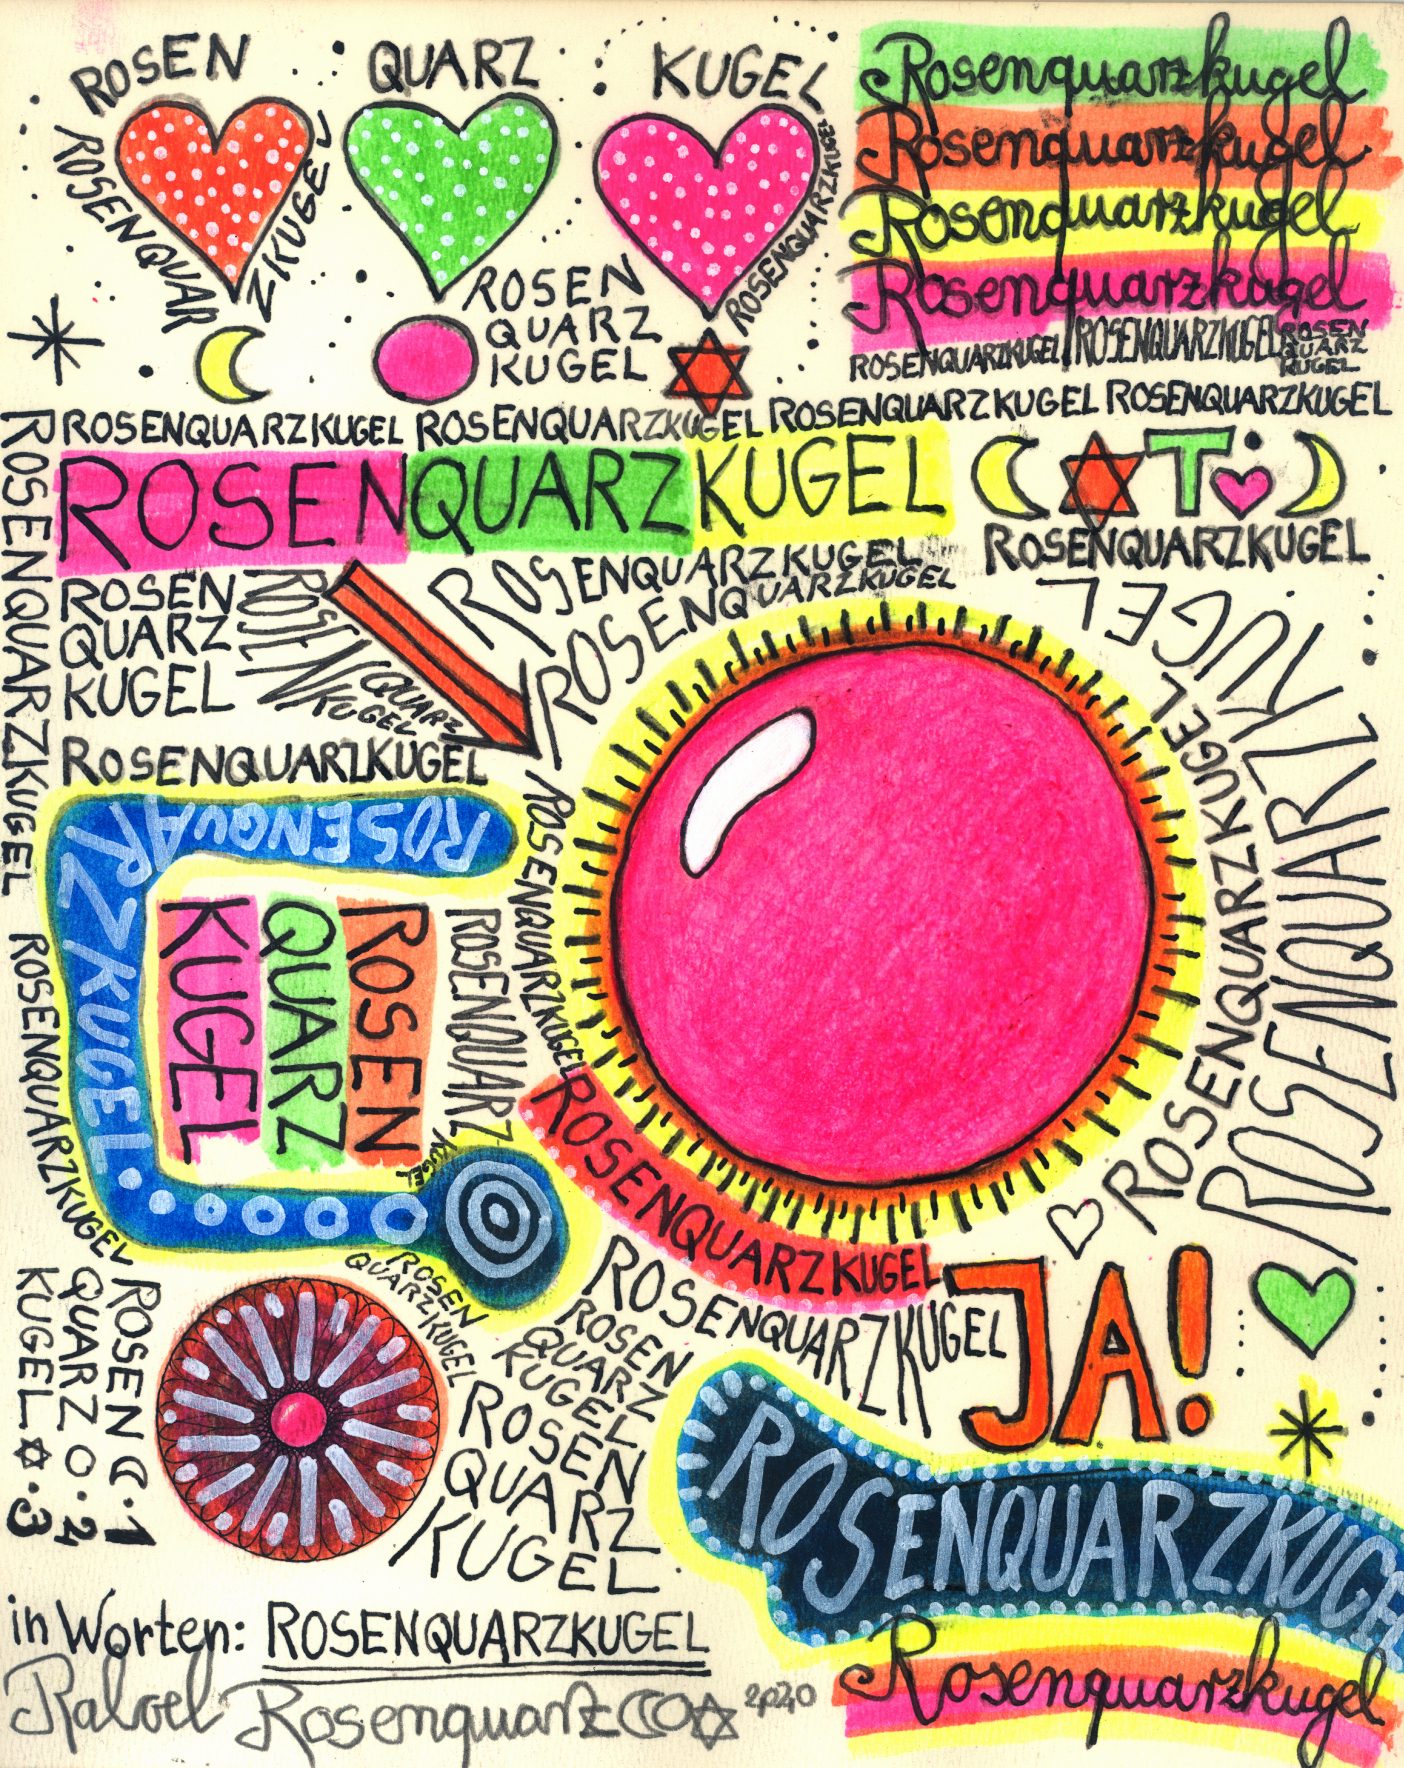 ROSEN QUARZ KUGEL
ROSENQUARZKUGEL
ROSENQUARZKUGEL
ROSEN
QUARZ
KUGEL
Rosenquarzkugel
Rosenquarzkugel
Rosenquarzkugel
Rosenquarzkugel
ROSENQUARZKUGEL ROSENQUARZKUGEL
ROSEN
QUARZ
KUGEL
ROSENQUARZKUGEL ROSENQUARZKUGEL ROSENQUARZKUGEL ROSENQUARZKUGEL
ROSENQUARZKUGEL
ROSENQUARZKUGEL
T
ROSENQUARZKUGEL
ROSEN
QUARZ
KUGEL
ROSEN
QUARZ
KUGEL
ROSENQUARZKUGEL
ROSENQUARZKUGEL
ROSENQUARZKUGEL
ROSENQUARZKUGEL
ROSENQUARZKUGEL
ROSENQUARZKUGEL
ROSEN
QUARZ
KUGEL
ROSENQUARZ
KUGEL
ROSENQUARZKUGEL
ROSENQUARZKUGEL
ROSENQUARZKUGEL
ROSENQUARZKUGEL
ROSENQUARZKUGEL
ROSENQUARZKUGEL
JA!
ROSEN
QUARZKUGEL
ROSEN ☾ · 1
QUARZ ○ · 2
KUGEL ✡ · 3
ROSEN
QUARZ
KUGEL
ROSEN
QUARZ
KUGEL
ROSENQUARZKUGEL
in Worten: ROSENQUARZKUGEL
Rosenquarzkugel
Rosenquarz ☾○✡ 2020